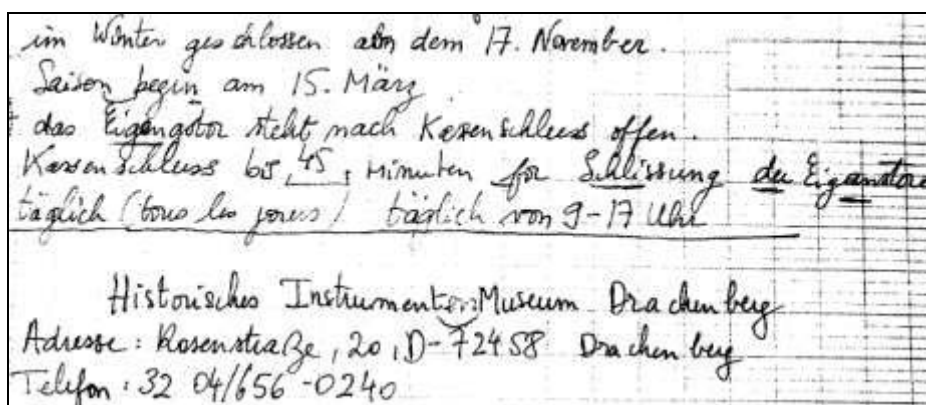 im Winter geschlossen abn dem 17. November.
Saison begin am 15. März
das Eigengotor steht nach Kassenschluss offen.
Kassenschluss bis 45, Minuten for Schlissung der Eigantore
täglich (tous les jours) täglich von 9-17 Uhr
Historisches Instrumenten Museum Drachenberg
Adresse: Rosenstraße, 20, D-72458 Drachenberg
Telefon: 32 04/656-0240